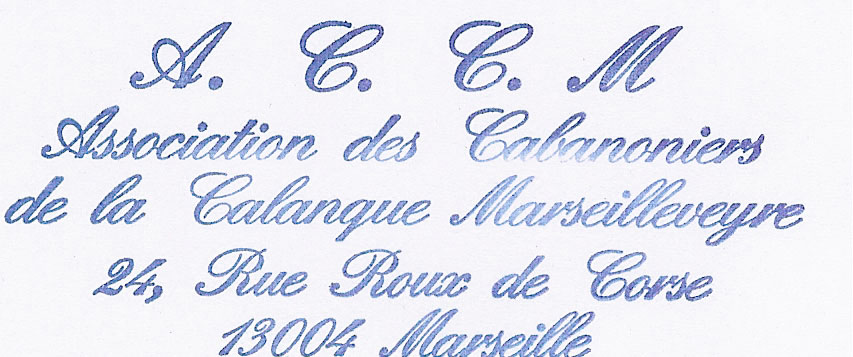 A. C. C. M
Association des Cabanoniers
de la Calanque Marseilleveyre
24, Rue Roux de Corse
13004 Marseille